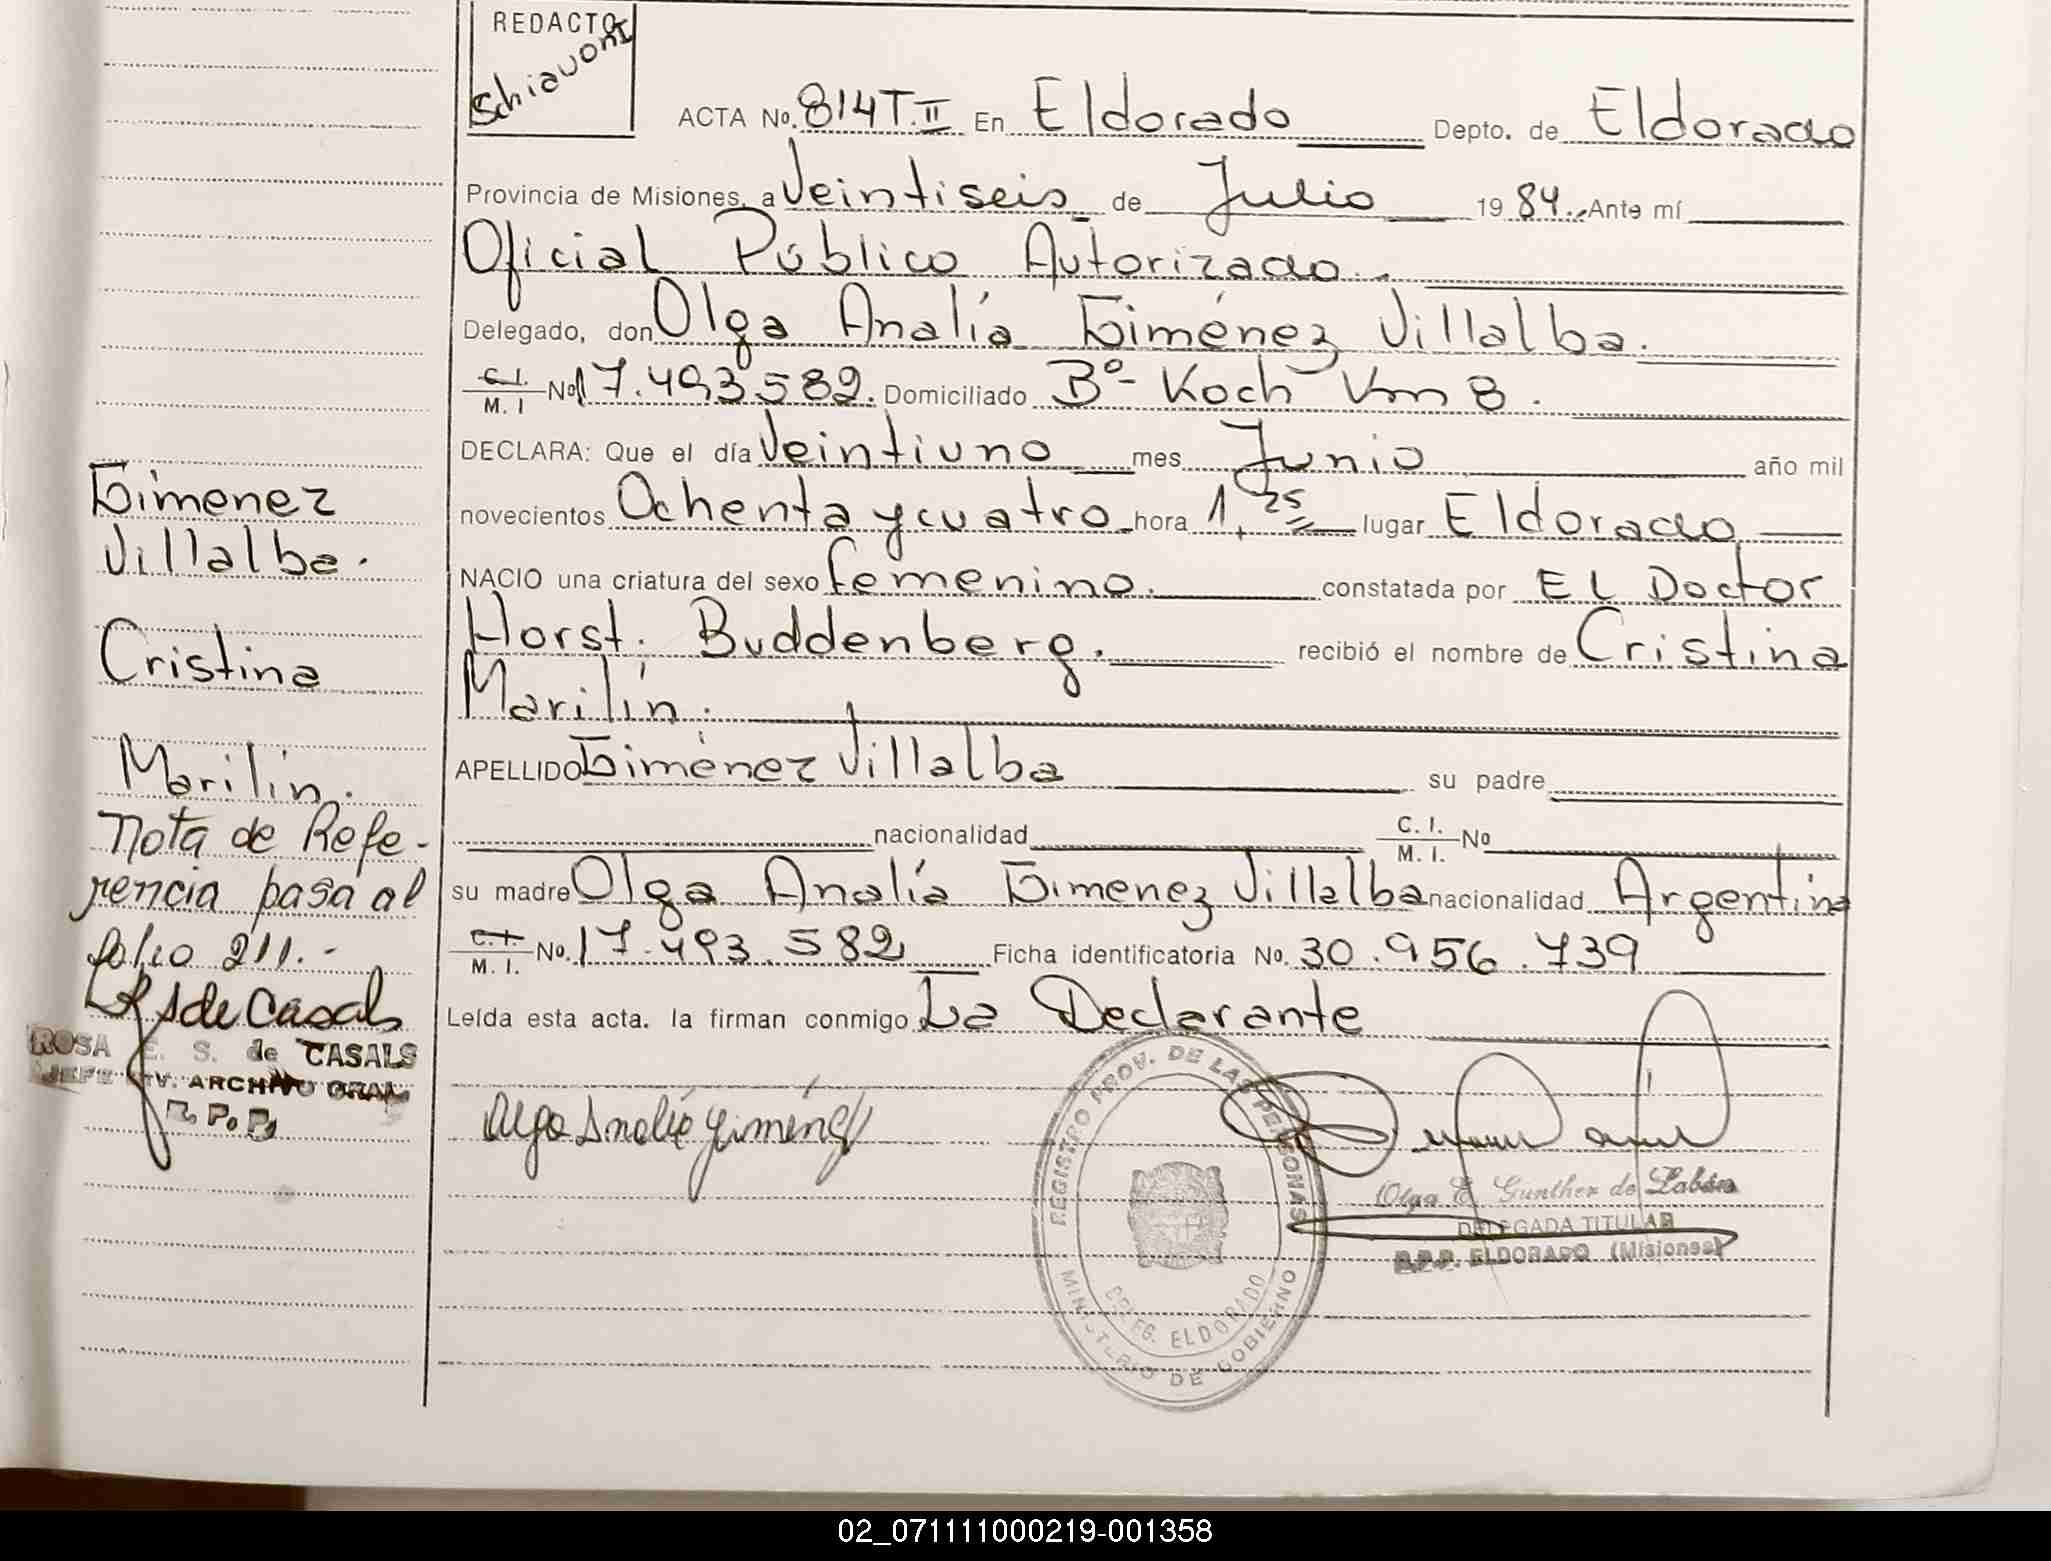 REDACTOR
Schiavoni
ACTA No. 814 T. II En Eldorado Depto. de Eldorado
Provincia de Misiones, a Veintiseis de Julio 19 84. Ante mí
Oficial Público Autorizado.
Delegado, don Olga Analía Giménez Villalba.
C. I. M. I No 17.493.582. Domiciliado Bº- Koch Km 8.
DECLARA: Que el día Veintiuno mes Junio año mil
novecientos Ochenta y cuatro hora 1,25 lugar Eldorado
NACIO una criatura del sexo femenino. constatada por EL Doctor
Horst. Buddenberg. recibió el nombre de Cristina
Marilín.
APELLIDO Giménez Villalba su padre
nacionalidad C. I. M. I. No
su madre Olga Analía Gimenez Villalba nacionalidad Argentina
C. I. M. I. No. 17.493.582 Ficha identificatoria No. 30.956.739
Leída esta acta. la firman conmigo La Declarante
Gimenez
Villalba.
Cristina
Marilín.
Nota de Refe-
rencia pasa al
folio 211.-
RSde Casals
ROSA E. S. de CASALS
JEFE DIV. ARCHIVO GRAL.
R. P. P.
Olga Analía Giménez
REGISTRO PROV. DE LAS PERSONAS
MINISTERIO DE GOBIERNO
DELEG. ELDORADO
Olga E. Gunther de Labán
DELEGADA TITULAR
R.P.P. ELDORADO (Misiones)
02_071111000219-001358